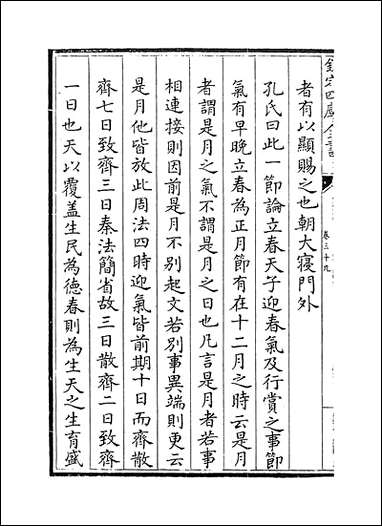 欽定四庫全書
卷三十九
者有以顯賜之也朝大寢門外
孔氏曰此一節論立春天子迎春氣及行賞之事節
氣有早晚立春為正月節有在十二月之時云是月
者謂是月之氣不謂是月之日也凡言是月者若事
相連接則因前是月不别起文若别事異端則更云
是月他皆放此周法四時迎氣皆前期十日而齊散
齊七日致齊三日秦法簡省故三日散齊二日致齊
一日也天以覆盖生民為德春則為生天之生育盛